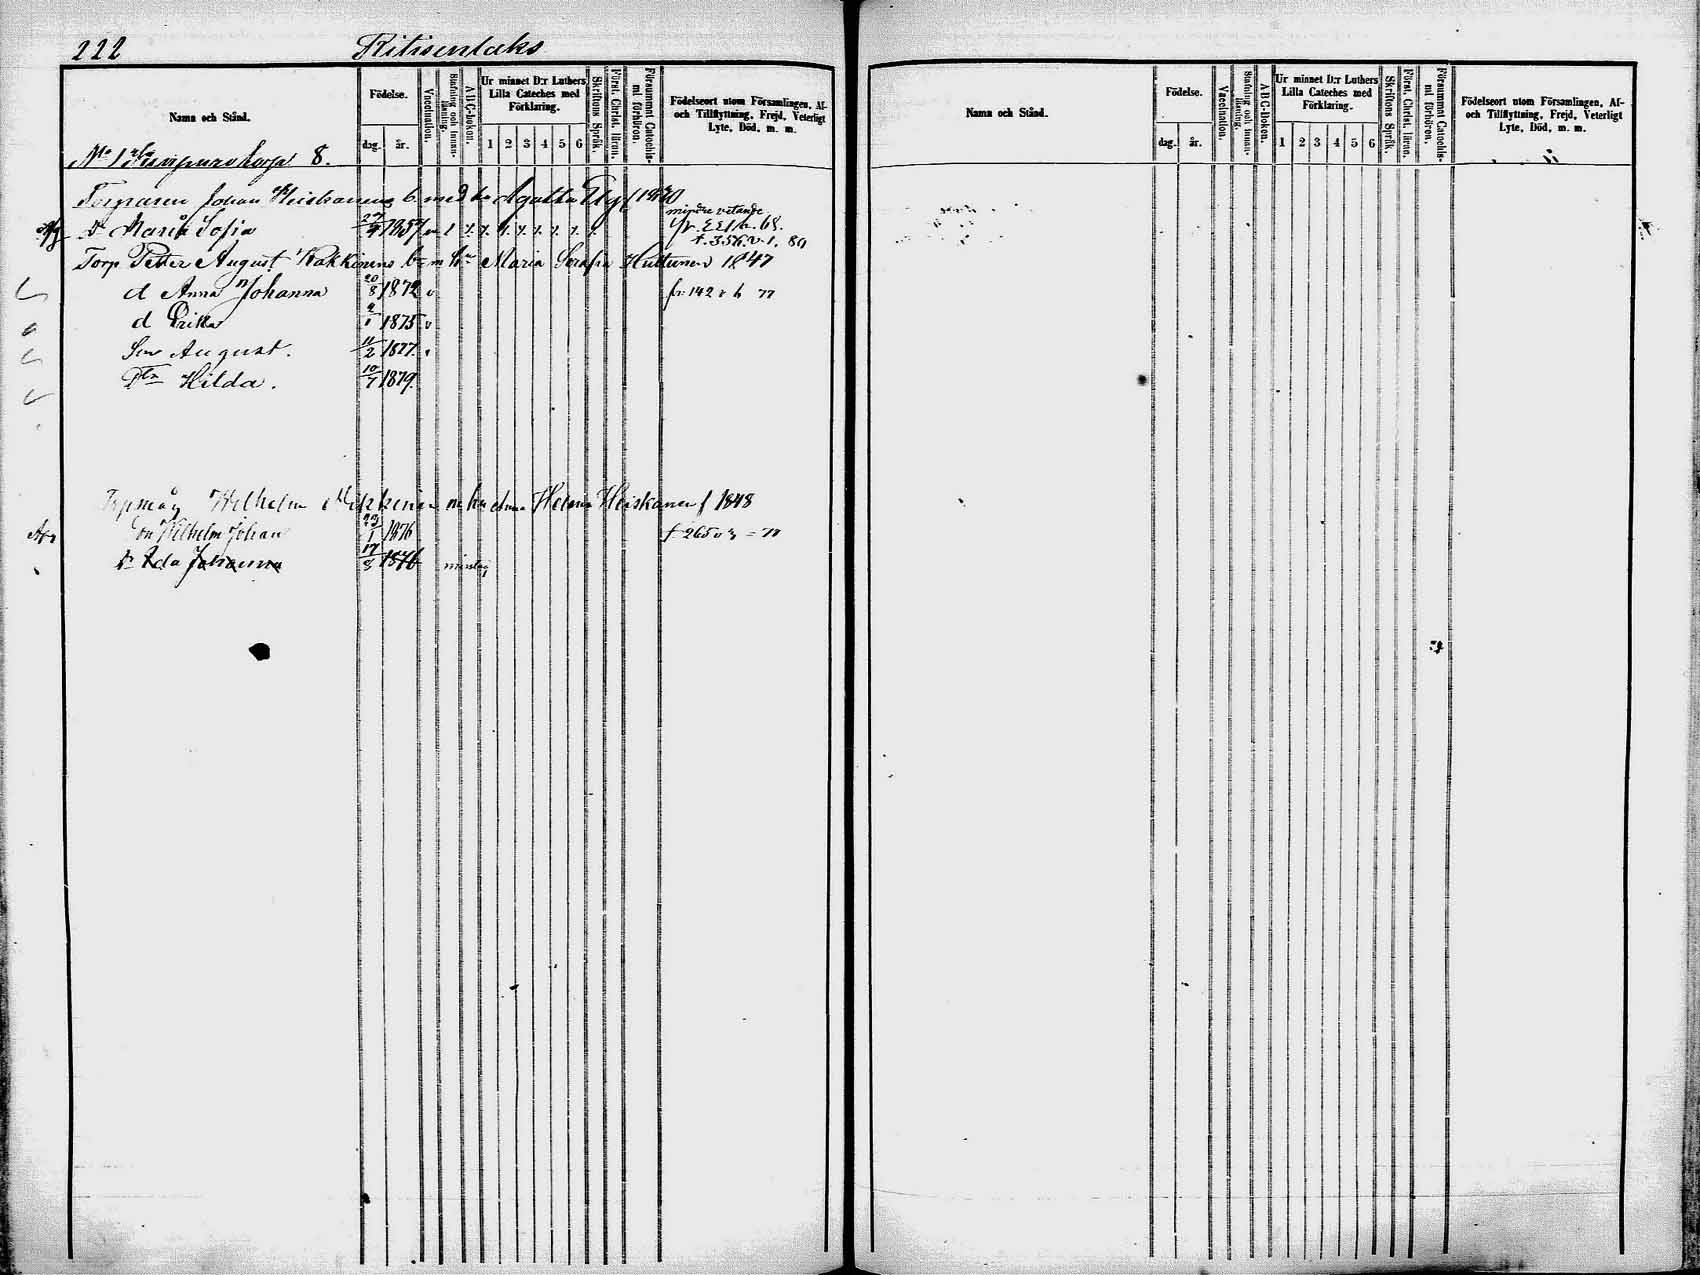 222 Ritisenlaks
Namn och Stånd.
Födelse.
dag. år.
Vaccination.
ABC-boken.
Ur minnet D:r Luthers Lilla Cateches med Förklaring.
1 2 3 4 5 6
Skriftens Språk.
Förat. Christ. läran.
Försummat Catechismi förhören.
Födelseort utom Församlingen, Af- och Tillflyttning, Frejd, Veterligt Lyte, Död, m. m.
No 1 8.
Torparen Johan Heiskanens b. med hu Agatha
Dr Maria Sofia 1857 v mindre vetande
fr. 68.
t. 356. v. 1. 80
Torp Petter August Kakkinens b m hu Maria Serafia Huttunen 1847
d Anna Johanna 20/8 1872 v fr 142 v h 77
d Erika 1875 v
Son August. 11/2 1877.
Dtr Hilda. 10/7 1879.
Wilhelm m hu Anna Helena Heiskanen f 1848
Son Wilhelm Johan 1876 f 265 v 3 = 77
Dr Ida Johanna 1876
Namn och Stånd.
Födelse.
dag. år.
Vaccination.
ABC-Boken.
Ur minnet D:r Luthers Lilla Cateches med Förklaring.
1 2 3 4 5 6
Skriftens Språk.
Förat. Christ. läran.
Försummat Catechismi förhören.
Födelseort utom Församlingen, Af- och Tillflyttning, Frejd, Veterligt Lyte, Död, m. m.